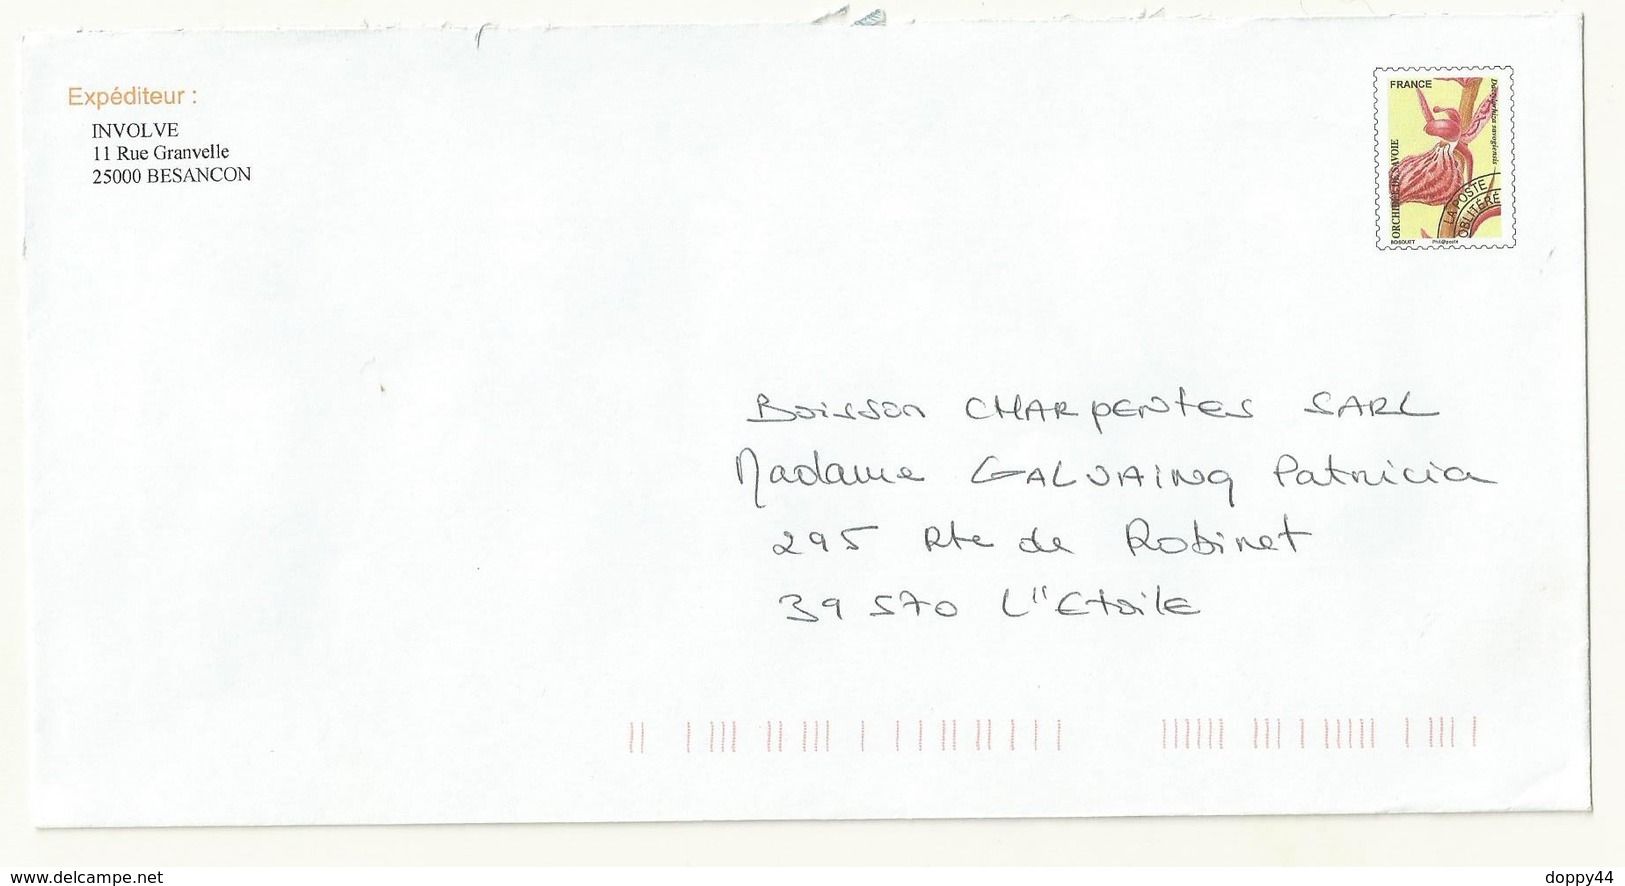 Expéditeur :
INVOLVE
11 Rue Granvelle
25000 BESANCON
FRANCE
Dactylorhiza savogiensis
ORCHIDÉE DE SAVOIE
LA POSTE
OBLITÉRÉ
BOSQUET Phil@poste
Boisson CHARpENtES SARL
Madame GALVAING Patricia
295 Rte de Robinet
39 570 L''Etoile
www.delcampe.net
doppy44